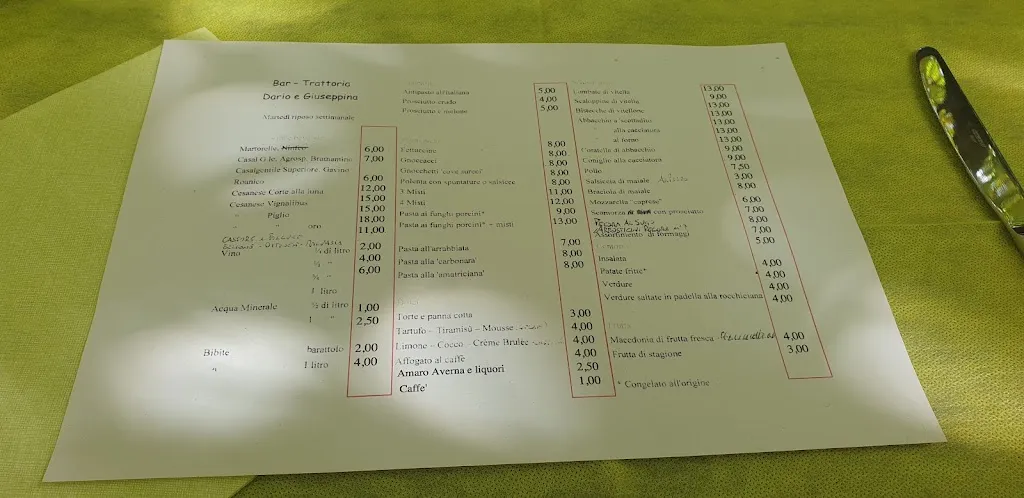 Bar - Trattoria
Dario e Giuseppina
Martedì riposo settimanale
Martorelle, 6,00
Casal G.le, Agrosp. Bromamino 7,00
Casalgentile Superiore, Gavino
Romanico 6,00
Cesanese Corte alla luna 12,00
Cesanese Vignalibus 15,00
" Piglio 15,00
18,00
" " oro 11,00
Vino ¼ di litro 2,00
½ " 4,00
" 6,00
1 litro
Acqua Minerale ½ di litro 1,00
1 " 2,50
Bibite barattolo 2,00
" 1 litro 4,00
Antipasto all'italiana 5,00
Prosciutto crudo 4,00
Prosciutto e melone 5,00
Fettuccine 8,00
Gnocacci 8,00
Gnocchetti 'cosa sarosi' 8,00
Polenta con spuntature o salsicce 8,00
3 Misti 11,00
4 Misti 12,00
Pasta ai funghi porcini* 9,00
Pasta ai funghi porcini* - misti 13,00
Pasta all'arrabbiata 7,00
Pasta alla 'carbonara' 8,00
Pasta alla 'amatriciana' 8,00
Torte e panna cotta 3,00
Tartufo – Tiramisù – Mousse 4,00
Limone – Cocco – Crème Brulée 4,00
Affogato al caffè 4,00
Amaro Averna e liquori 2,50
Caffe' 1,00
Lombate di vitella 13,00
Scaloppine di vitella 9,00
Bistecche di vitellone 13,00
Abbacchio a 'scottadito' 13,00
" alla cacciatora 13,00
al forno 13,00
Coratella di abbacchio 9,00
Coniglio alla cacciatora 9,00
Pollo 7,50
Salsiccia di maiale 3,00
Braciola di maiale 8,00
Mozzarella "caprese" 6,00
Scamorza con prosciutto 7,00
Pecora al sugo 8,00
Arrosticini pecora 7,00
Assortimento di formaggi 5,00
Insalata 4,00
Patate fritte* 4,00
Verdure 4,00
Verdure saltate in padella alla rocchiciana 4,00
Macedonia di frutta fresca 4,00
Frutta di stagione 3,00
* Congelato all'origine